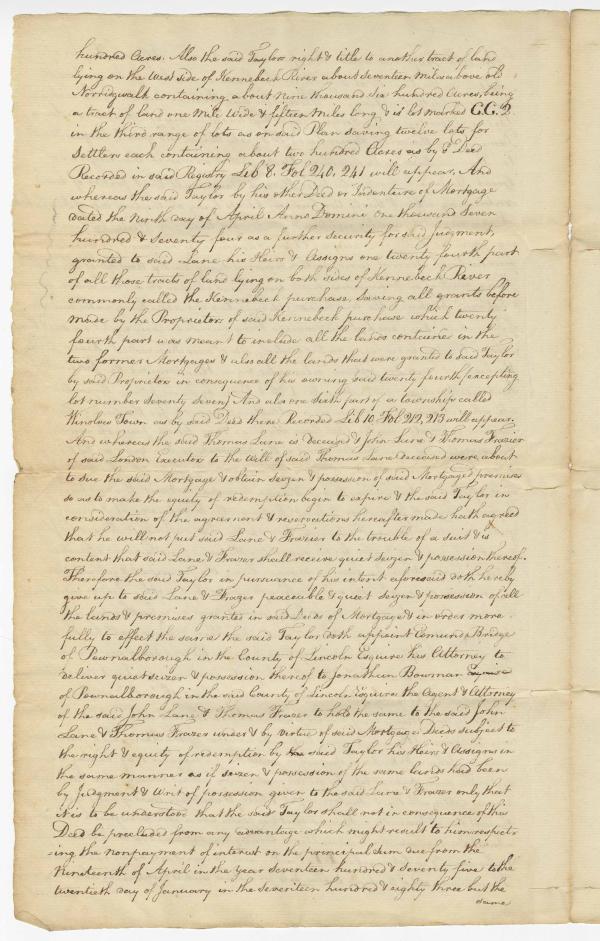 hundred Acres. Also the said Taylors right & title to another tract of land
lying on the West side of Kennebeck River about Seventeen Miles above old
Norridgwalk containing about Nine thousand Six hundred Acres, being
a tract of land one Mile Wide & fifteen Miles long & is lot marked G.G.2
in the third range of lots as on said Plan saving twelve lots for
Settlers each containing about two hundred Acres as by sd Deed
Recorded in said Registry Leb 8. Fol 240, 241 will appear. And
whereas the said Taylor by his other Deed or Indenture of Mortgage
dated the Ninth day of April Anno Domini one thousand Seven
hundred & Seventy four as a further security for said Judgment,
granted to said Lane his Heirs & Assigns one twenty fourth part
of all those tracts of land lying on both sides of Kennebeck River
commonly called the Kennebeck purchase, saving all grants before
made by the Proprietors of said Kennebeck purchase which twenty
fourth part was meant to include all the lands contained in the
two former Mortgages & also all the lands that were granted to said Taylor
by said Proprietors in consequence of his owning said twenty fourth (excepting
lot number seventy seven) And also one sixth part of a township called
Winslows Town as by said Deed there Recorded Leb 10. Fol 212, 213 will appear.
And whereas the said Thomas Lane is deceased & John Lane & Thomas Frazier
of said London Executors to the Will of said Thomas Lane deceased were about
to sue the said Mortgage & obtain Seizen & possession of said Mortgaged premises
so as to make the equity of redemption begin to expire & the said Taylor in
consideration of the agreement & reservations hereafter made hath agreed
that he will not put said Lane & Frazier to the trouble of a suit & is
content that said Lane & Frazer shall receive quiet Seizen & possession thereof.
Therefore the said Taylor in pursuance of his intent aforesaid doth hereby
give up to said Lane & Frazer peaceable & quiet Seizen & possession of all
the lands & premises granted in said Deeds of Mortgage & in order more
fully to effect the same the said Taylor doth appoint Edmund Bridge
of Pownalborough in the County of Lincoln Esquire his Attorney to
deliver quiet seizen & possession thereof to Jonathan Bowman Esquire
of Pownalborough in the said County of Lincoln Esquire the Agent & Attorney
of the said John Lane & Thomas Frazer to hold the same to the said John
Lane & Thomas Frazer under & by virtue of said Mortgage Deeds subject to
the right & equity of redemption by the said Taylor his Heirs & Assigns in
the same manner as if seizen & possession of the same lands had been
by Judgment & Writ of possession given to the said Lane & Frazer only that
it is to be understood that the said Taylor shall not in consequence of this
Deed be precluded from any advantage which might result to him respect-
-ing the nonpayment of interest on the principal sum due from the
Nineteenth of April in the Year seventeen hundred & seventy five to the
twentieth day of January in the Seventeen hundred & eighty three but the
same